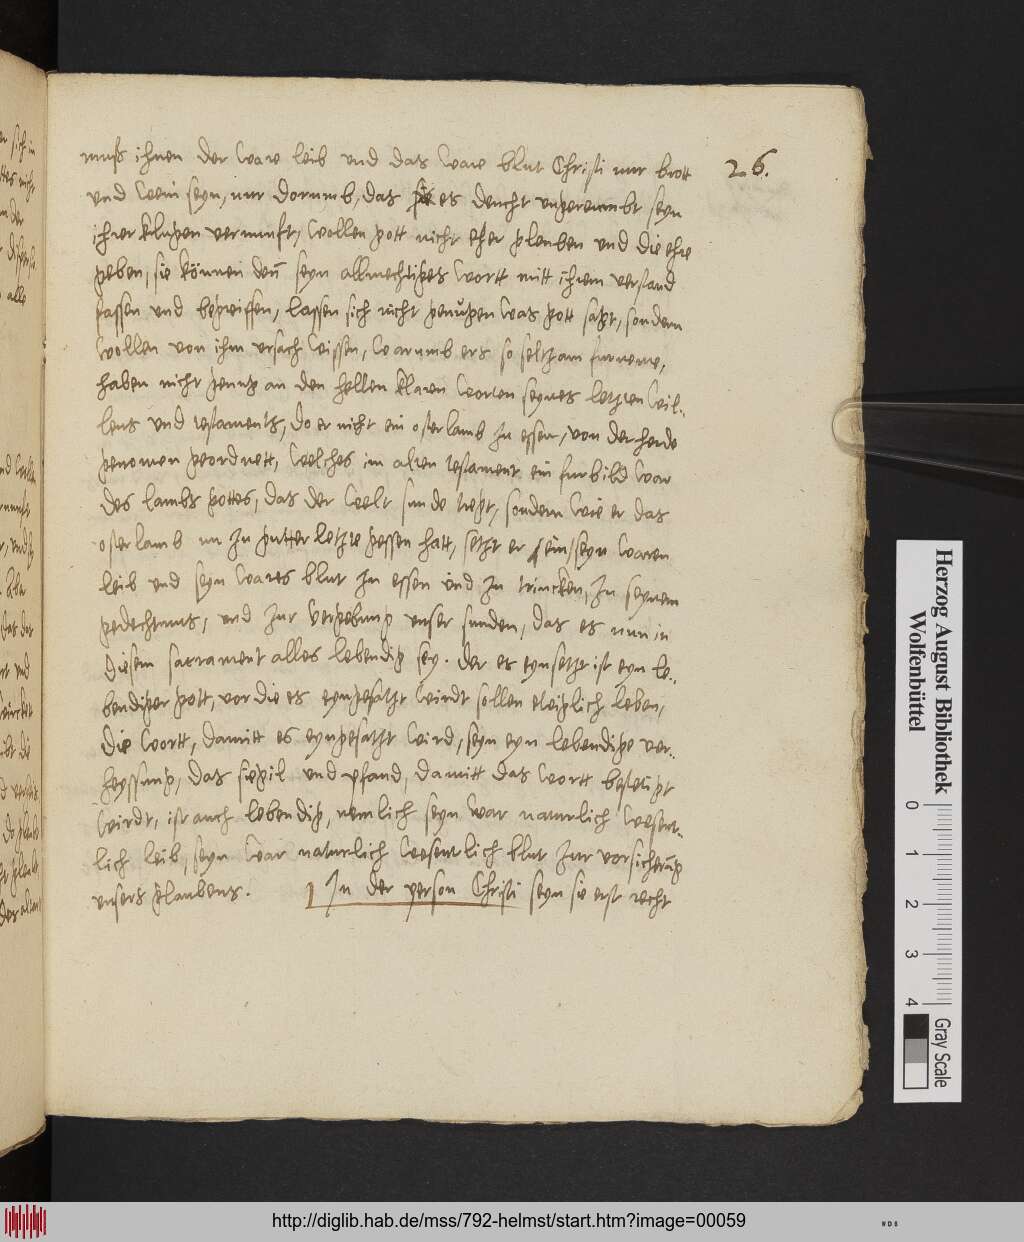 muß ihnen der ware leib und das ware blut Christi nur brott
26.
und wein seyn, nur dorumb, das es deucht ungereumbt seyn
ihrer klugen vernunft, wollen gott nicht eher gleuben und die ehre
geben, sie können den̄ seyn allmechtiges wortt mitt ihrem verstand
fassen und begreiffen, lassen sich nicht genügen was gott sagt, sondern
wollen von ihm ursach wissen, warumb ers so seltzam furneme,
haben nicht genug an den hellen klaren worten seynes letzten wil-
lens und testaments, do er nicht ein osterlamb zu essen, von der herde
genomen geordnett, welches im alten testament ein furbild war
des lambs gottes, das der welt sunde tregt, sondern wie er das
osterlamb nu zu gutter letzte gessen hatt, setzt er ein/ seyn waren
leib und seyn wares blut zu essen und zu trincken, zu seynem
gedechtnus, und zur vergebung unser sunden, das es nun in
diesem sacrament alles lebendig sey. der es eynsetzt ist eyn le-
bendiger gott, vor die es eyngesatzt wirdt sollen ewiglich leben,
die wortt, damitt es eyngesatzt wird, seyn eyn lebendige ver-
heyssung, das siegil und pfand, damitt das wortt bestetigt
wirdt, ist auch lebendig, nemlich seyn war naturlich wesent-
lich leib, seyn war naturlich wesentlich blut zur vorsicherung
unsers glaubens. In der person Christi seyn sie erst recht
Herzog August Bibliothek
Wolfenbüttel
0 1 2 3 4
Gray Scale
http://diglib.hab.de/mss/792-helmst/start.htm?image=00059